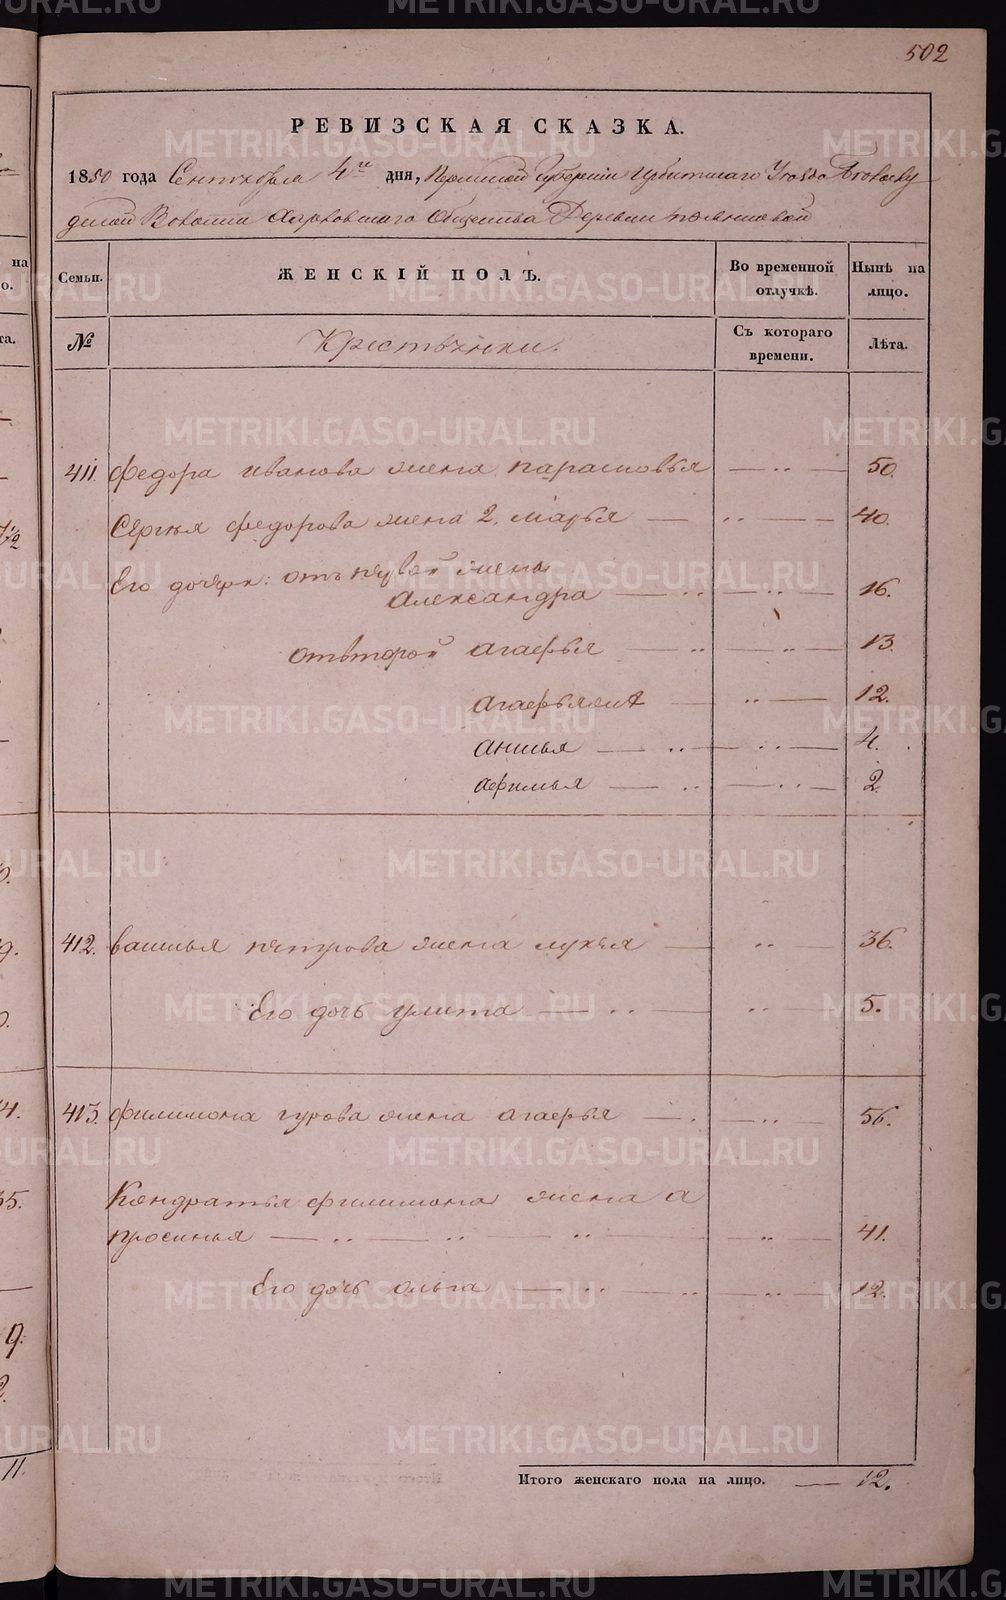 METRIKI.GASO-URAL.RU
502
РЕВИЗСКАЯ СКАЗКА.
1850 года Сентября 4го дня, Пермской Губернии Ирбитскаго Уезда
Волости Общества Деревни
Семьи. ЖЕНСКІЙ ПОЛЪ. Во временной отлучкѣ. Нынѣ на лицо.
№ Крестьянки. Съ котораго времени. Лѣта.
411. Федора иванова жена парасковья — 50.
Сергѣя федорова жена 2. марья — 40.
Его дочери: отъ первой жены
александра — 16.
отвторой агафья — 13.
12.
анисья — 4.
афимья — 2.
412. василья петрова жена лукѣя — 36.
Его дочь улита — 5.
413. филимона гурова жена агафья — 56.
Кондратья филимона жена а
просинья — 41.
Его дочь ольга — 12.
Итого женскаго пола на лицо. — 12.